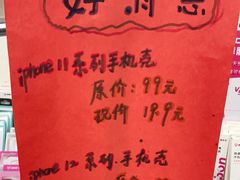 好消息
iphone 11系列手机壳
原价：99元
现价 19.9元
iphone 12系列.手机壳